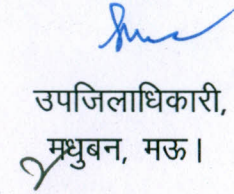 उपजिलाधिकारी,
मधुबन, मऊ।